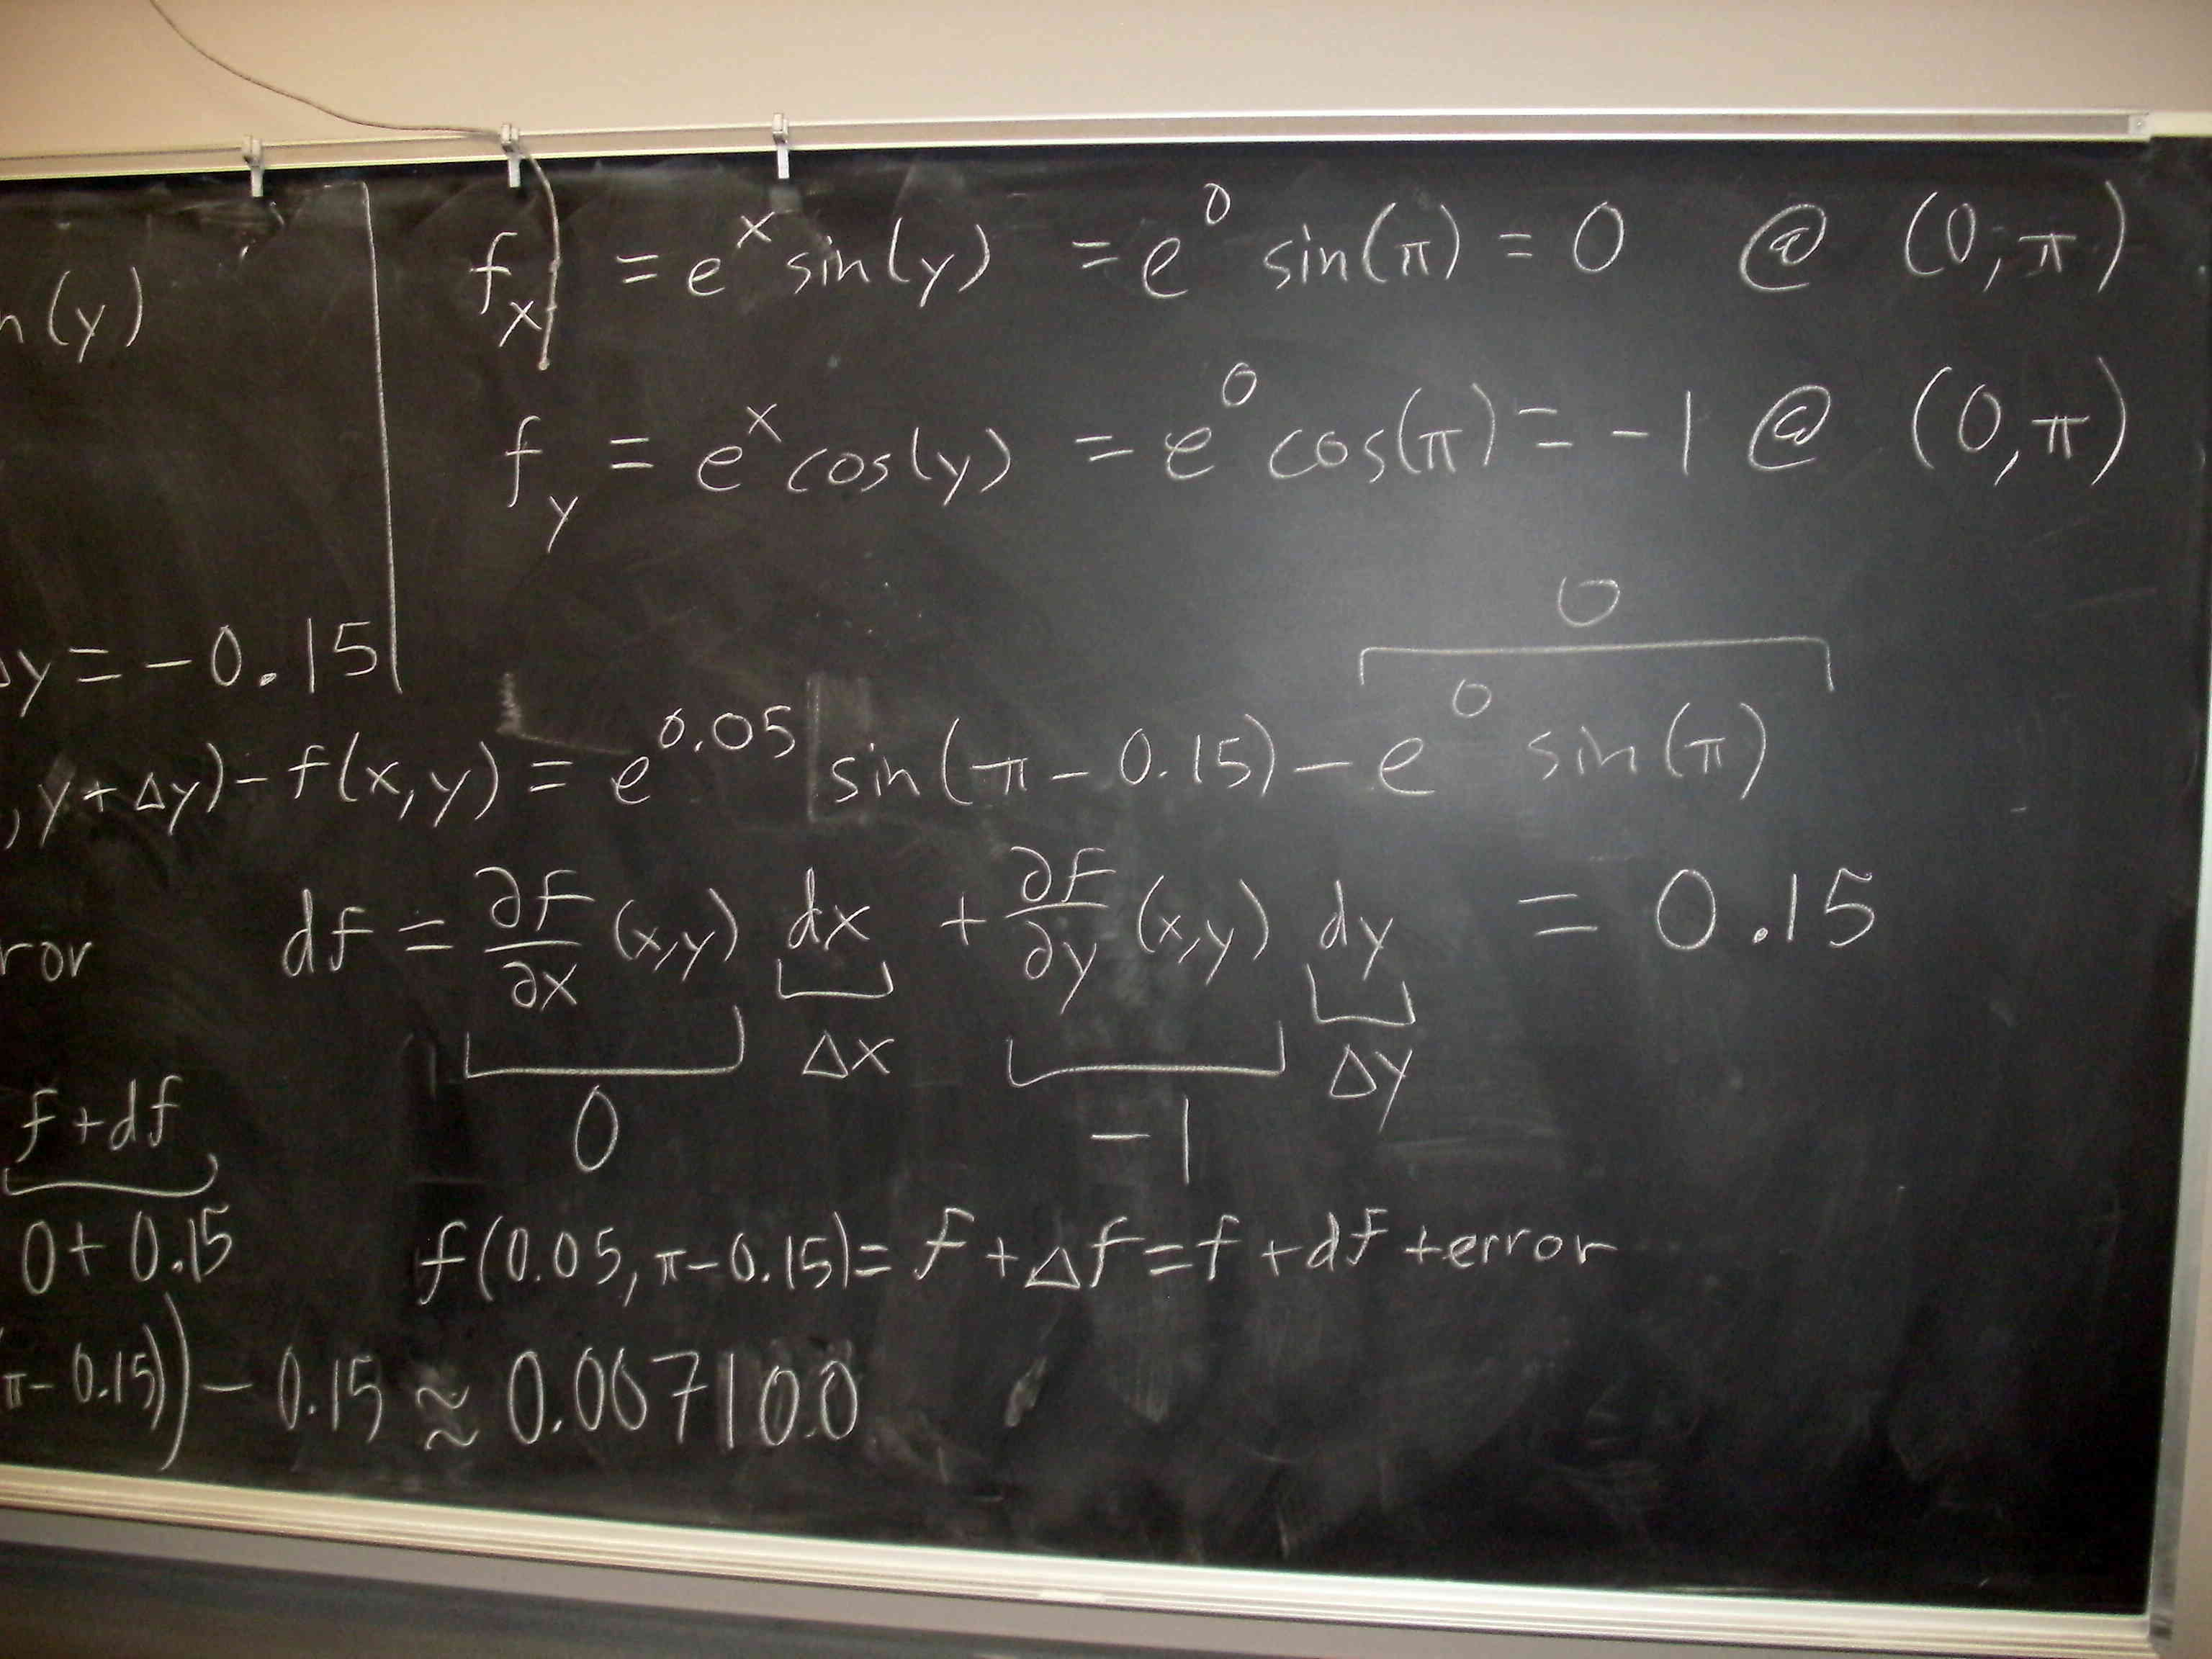 n(y)
f_x = e^x sin(y) = e^0 sin(π) = 0 @ (0, π)
f_y = e^x cos(y) = e^0 cos(π) = -1 @ (0, π)
Δy = -0.15
0
, y+Δy) - f(x,y) = e^0.05 sin(π - 0.15) - e^0 sin(π)
ror df = ∂f/∂x (x,y) dx + ∂f/∂y (x,y) dy = 0.15
Δx Δy
0 -1
f+df
0+0.15 f(0.05, π-0.15) = f + Δf = f + df + error
π-0.15)) - 0.15 ≈ 0.007100